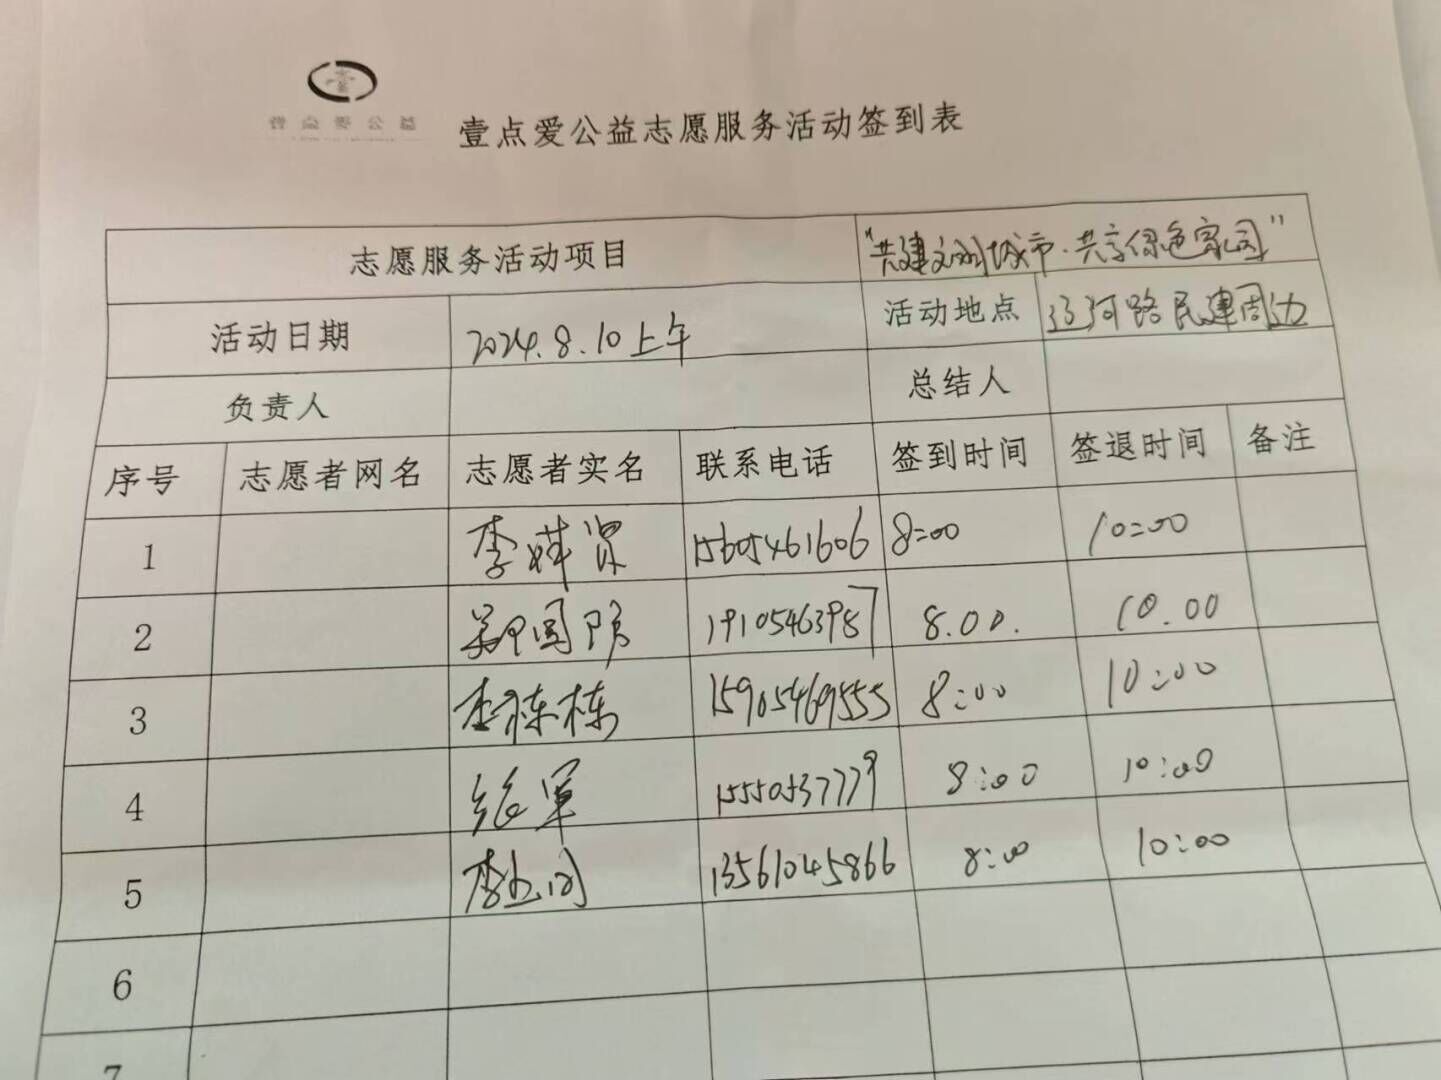 壹点爱公益
壹点爱公益志愿服务活动签到表
志愿服务活动项目 “共建文明城市·共享绿色家园”
活动日期 2024.8.10上午 活动地点 辽河路民建周边
负责人 总结人
序号 志愿者网名 志愿者实名 联系电话 签到时间 签退时间 备注
1 15605461606 8:00 10:00
2 19105463987 8.00. 10.00
3 李栋栋 15905469555 8:00 10:00
4 15550537779 8:00 10:00
5 13561045866 8:00 10:00
6
7